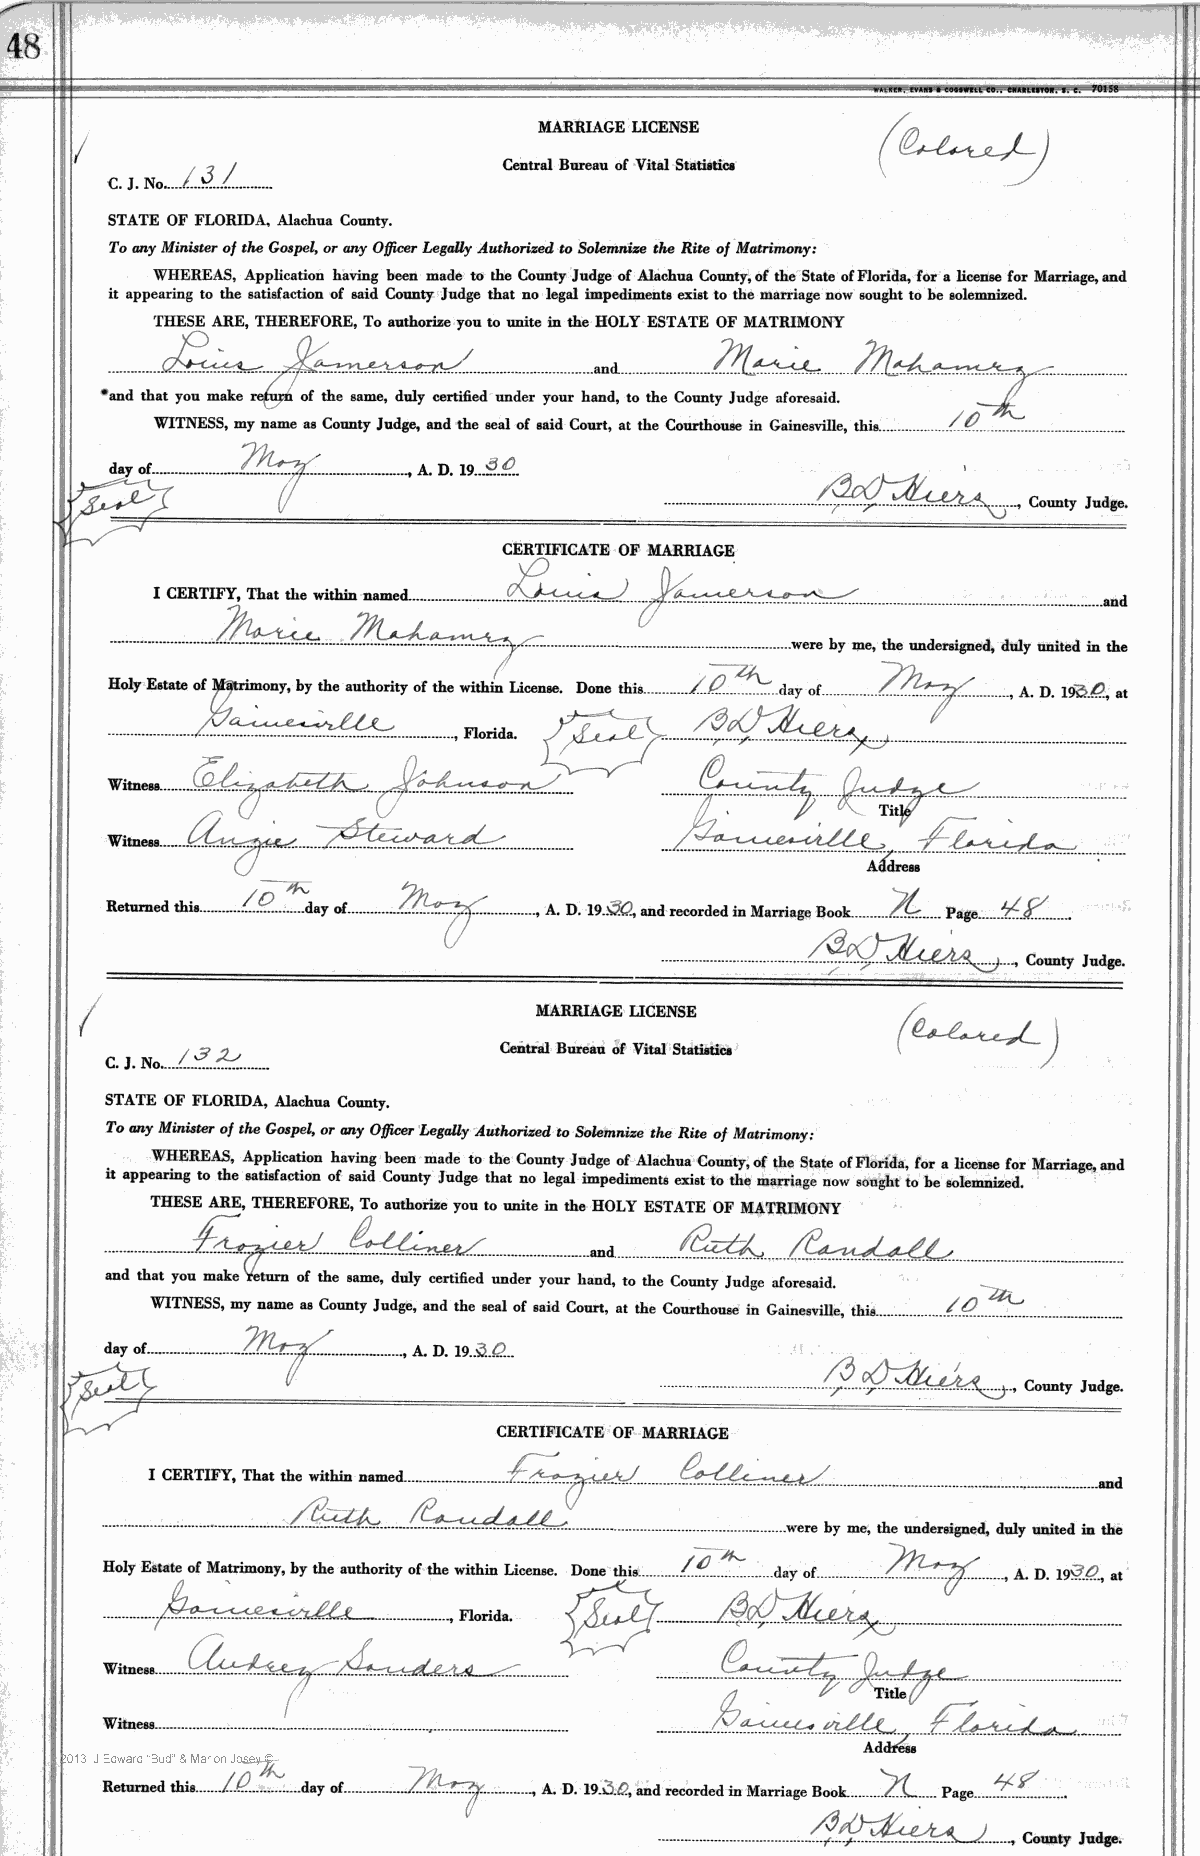 48
WALKER, EVANS & COGSWELL CO., CHARLESTON, S. C. 70158
MARRIAGE LICENSE (Colored)
Central Bureau of Vital Statistics
C. J. No. 131
STATE OF FLORIDA, Alachua County.
To any Minister of the Gospel, or any Officer Legally Authorized to Solemnize the Rite of Matrimony:
WHEREAS, Application having been made to the County Judge of Alachua County, of the State of Florida, for a license for Marriage, and
it appearing to the satisfaction of said County Judge that no legal impediments exist to the marriage now sought to be solemnized.
THESE ARE, THEREFORE, To authorize you to unite in the HOLY ESTATE OF MATRIMONY
Louis Jamerson and Marie Mahamry
and that you make return of the same, duly certified under your hand, to the County Judge aforesaid.
WITNESS, my name as County Judge, and the seal of said Court, at the Courthouse in Gainesville, this 10th
day of May, A. D. 1930
Seal B, D, Hiers, County Judge.
CERTIFICATE OF MARRIAGE
I CERTIFY, That the within named Louis Jamerson and
Marie Mahamry were by me, the undersigned, duly united in the
Holy Estate of Matrimony, by the authority of the within License. Done this 10th day of May, A. D. 1930, at
Gainesville, Florida. Seal B, D, Hiers,
Witness Elizabeth Johnson County Judge
Title
Witness Angie Steward Gainesville, Florida
Address
Returned this 10th day of May, A. D. 1930, and recorded in Marriage Book N Page 48
B, D, Hiers, County Judge.
MARRIAGE LICENSE (Colored)
Central Bureau of Vital Statistics
C. J. No. 132
STATE OF FLORIDA, Alachua County.
To any Minister of the Gospel, or any Officer Legally Authorized to Solemnize the Rite of Matrimony:
WHEREAS, Application having been made to the County Judge of Alachua County, of the State of Florida, for a license for Marriage, and
it appearing to the satisfaction of said County Judge that no legal impediments exist to the marriage now sought to be solemnized.
THESE ARE, THEREFORE, To authorize you to unite in the HOLY ESTATE OF MATRIMONY
Frozier Colliner and Ruth Randall
and that you make return of the same, duly certified under your hand, to the County Judge aforesaid.
WITNESS, my name as County Judge, and the seal of said Court, at the Courthouse in Gainesville, this 10th
day of May, A. D. 1930
Seal B, D, Hiers, County Judge.
CERTIFICATE OF MARRIAGE
I CERTIFY, That the within named Frozier Colliner and
Ruth Randall were by me, the undersigned, duly united in the
Holy Estate of Matrimony, by the authority of the within License. Done this 10th day of May, A. D. 1930, at
Gainesville, Florida. Seal B, D, Hiers,
Witness Audrey Sanders County Judge
Title
Witness Gainesville, Florida
Address
2013 J Edward "Bud" & Marion Josey ©
Returned this 10th day of May, A. D. 1930, and recorded in Marriage Book N Page 48
B, D, Hiers, County Judge.